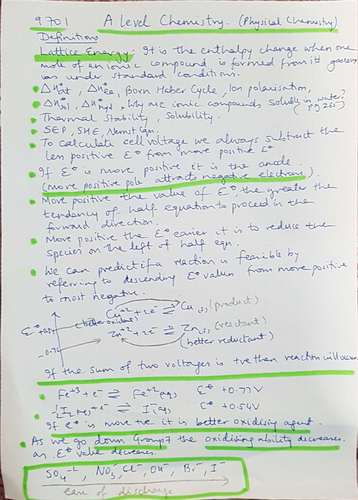 9701 A Level Chemistry. (Physical Chemistry)
Definitions
Lattice Energy: It is the enthalpy change when one
mole of an ionic compound is formed from its gaseous
ions under standard conditions.
ΔH°at, ΔH°ea, Born Haber Cycle, Ion polarisation,
ΔH°sol, ΔH°hyd, Why are ionic compounds soluble in water?
(Pg 265)
Thermal Stability, Solubility.
SEP, SHE, Nernst Eqn.
To calculate cell voltage we always subtract the
less positive E° from more positive E°
If E° is more positive it is the anode.
(more positive pole attracts negative electrons).
More positive the value of E° the greater the
tendency of half equation to proceed in the
forward direction.
More positive the E° easier it is to reduce the
species on the left of half eqn.
We can predict if a reaction is feasible by
referring to descending E° values from more positive
to most negative.
Cu+2 + 2e- ⇌ Cu(s) (product)
(better oxidant)
E°
Zn+2 + 2e- ⇌ Zn(s) (reactant)
(better reductant)
If the sum of two voltages is +ve then reaction will occur
Fe+3 + e- ⇌ Fe+2 aq E° +0.77V
½I2 aq + e- ⇌ I- aq E° +0.54V
If E° is more +ve it is better oxidising agent.
As we go down Group 7 the oxidising ability decreases.
as E° value decreases.
SO4-2, NO3-, Cl-, OH-, Br-, I-
Ease of discharge